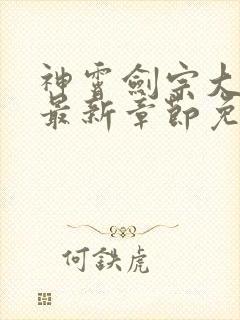 神霄劍宗大
最新章節免
何鉄虎